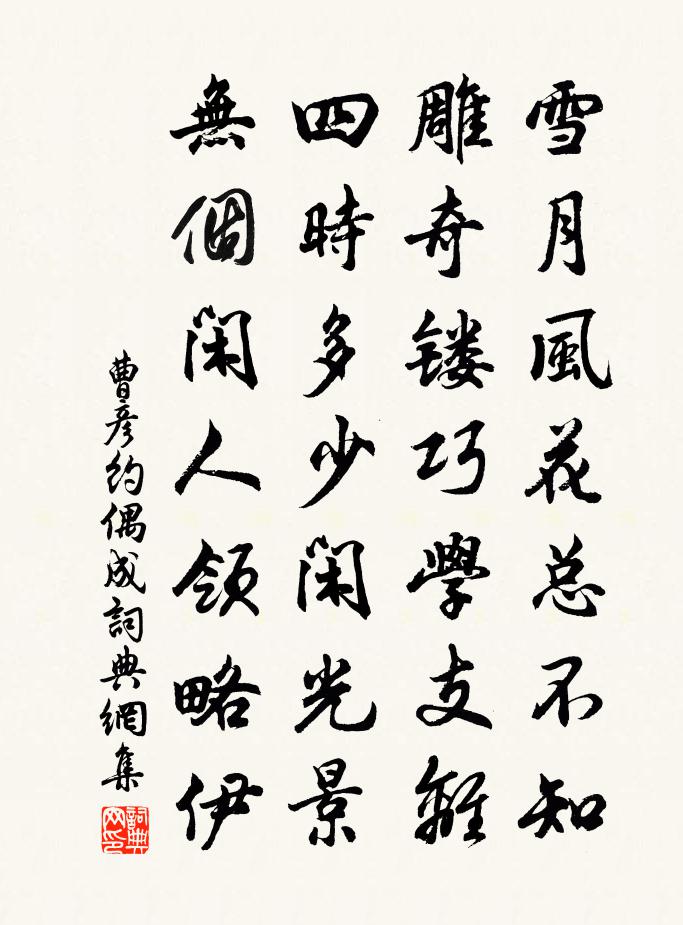 雪月風花总不知
雕奇镂巧學支離
四時多少閑光景
無個閑人領略伊
曹彦約偶成詞典網集
詞典
网印